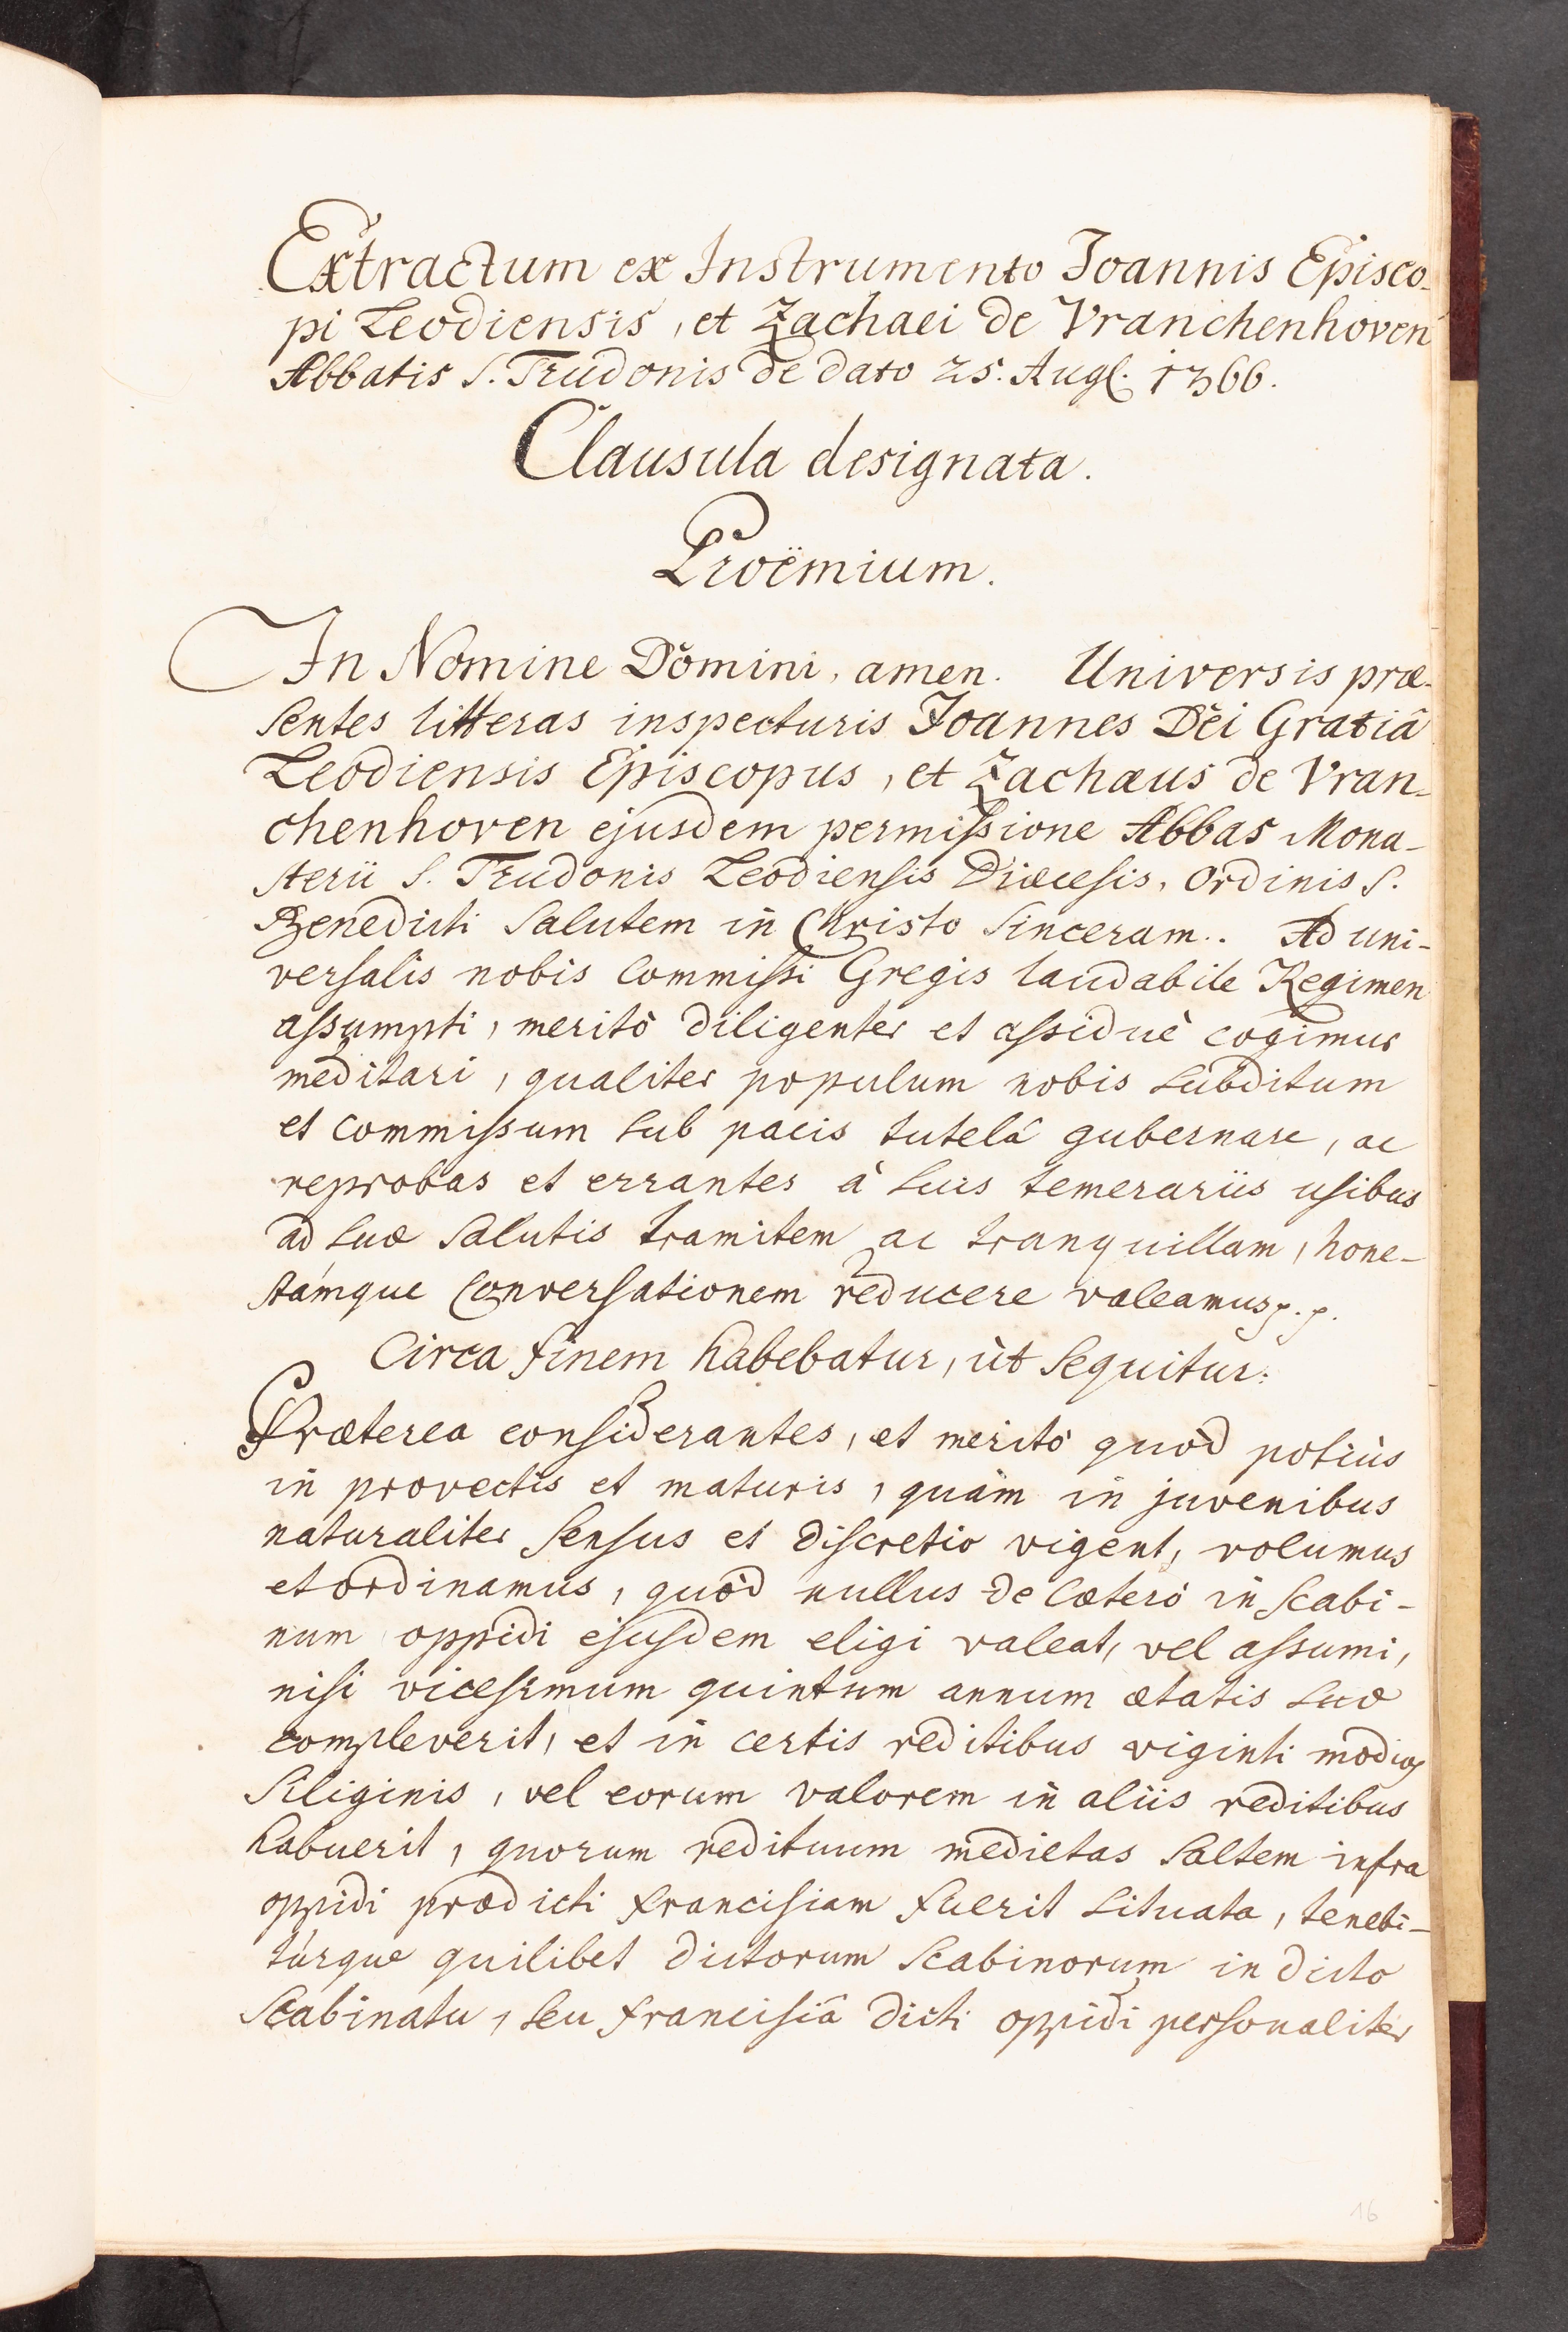 Extractum ex Instrumento Joannis Episco-
pi Leodiensis, et Zachaei de Vranchenhoven
Abbatis S. Trudonis de dato 25. Augs. 1366.
Clausula designata.
Proëmium.
In Nomine Domini, amen. Universis præ-
sentes litteras inspecturis Joannes Dei Gratiâ
Leodiensis Episcopus, et Zachæus de Vran-
chenhoven ejusdem permissione Abbas Mona-
sterii S. Trudonis Leodiensis Diœcesis, Ordinis S.
Benedicti Salutem in Christo sinceram.. Ad uni-
versalis nobis commissi Gregis laudabile Regimen
assumpti, meritò diligenter et assiduè cogimur
meditari, qualiter populum nobis subditum
et commissum sub pacis tutelâ gubernare, ac
reprobas et errantes à suis temerariis usibus
ad suæ salutis tramitem ac tranquillam, hone-
stamque conversationem reducere valeamus p. p.
Circa finem habebatur, ùt sequitur:
Præterea considerantes, et meritò quòd potiùs
in provectis et maturis, quàm in juvenibus
naturaliter sensus et discretio vigent, volumus
et ordinamus, quòd nullus de cætero in Scabi-
num oppidi ejusdem eligi valeat, vel assumi,
nisi vicesimum quintum annum ætatis suæ
compleverit, et in certis reditibus viginti modios
Siliginis, vel eorum valorem in aliis reditibus
habuerit, quorum redituum medietas saltem infra
oppidi prædicti francisiam fuerit situata, tenebi-
túrque quilibet dictorum Scabinorum in dicto
Scabinatu, seu francisiâ dicti oppidi personaliter
16